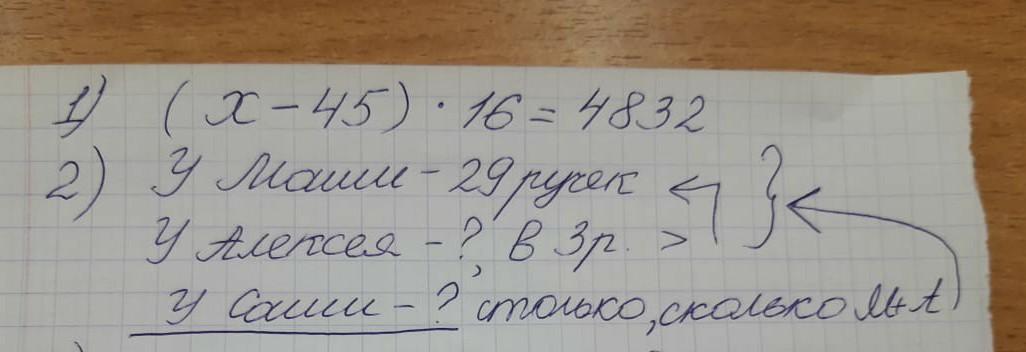 1) (x - 45) · 16 = 4832
2) У Маши - 29 ручек
У Алексея - ?, в 3 р. >
У Саши - ? столько, сколько М + А